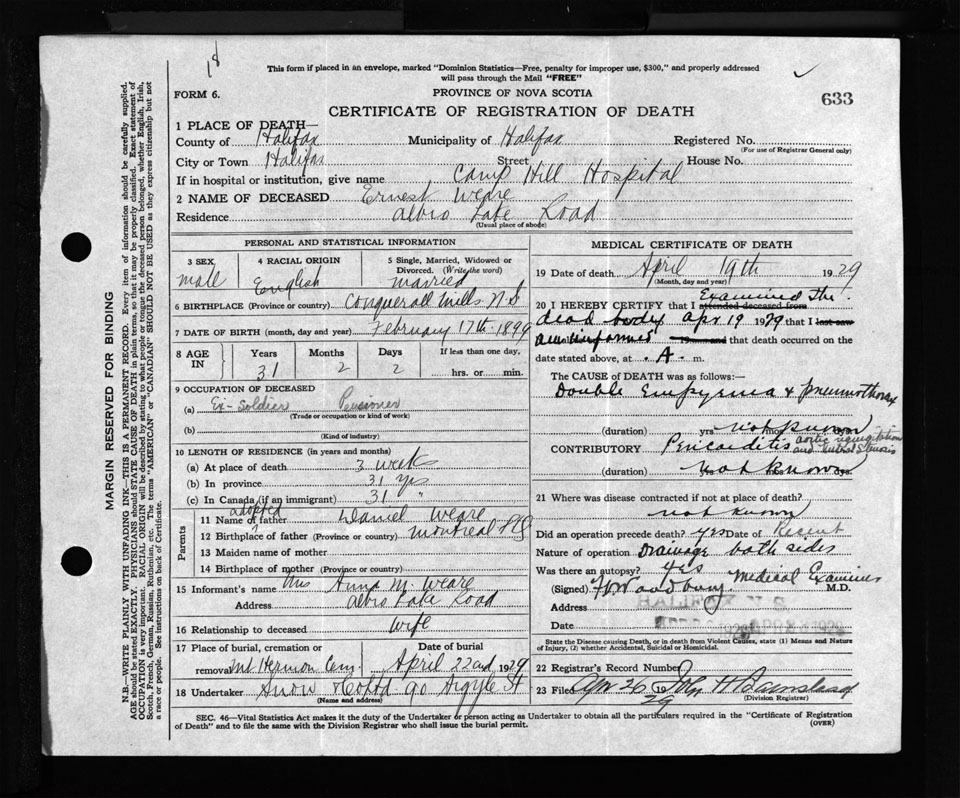 18
This form if placed in an envelope, marked "Dominion Statistics—Free, penalty for improper use, $300," and properly addressed
will pass through the Mail "FREE"
FORM 6.
PROVINCE OF NOVA SCOTIA
633
CERTIFICATE OF REGISTRATION OF DEATH
1 PLACE OF DEATH—
County of Halifax Municipality of Halifax Registered No.
(For use of Registrar General only)
City or Town Halifax Street House No.
If in hospital or institution, give name Camp Hill Hospital
2 NAME OF DECEASED Ernest Weare
Residence Albro Lake Road
(Usual place of abode)
PERSONAL AND STATISTICAL INFORMATION
3 SEX 4 RACIAL ORIGIN 5 Single, Married, Widowed or
Divorced. (Write the word)
male English married
6 BIRTHPLACE (Province or country) Conquerall Mills N.S
7 DATE OF BIRTH (month, day and year) February 17th 1899
8 AGE IN Years Months Days If less than one day,
31 2 2 hrs. or min.
9 OCCUPATION OF DECEASED
(a) Ex-Soldier Pensioner
(Trade or occupation or kind of work)
(b)
(Kind of industry)
10 LENGTH OF RESIDENCE (in years and months)
(a) At place of death 3 weeks
(b) In province 31 yrs
(c) In Canada (if an immigrant) 31 "
Parents
adopted
11 Name of father Daniel Weare
12 Birthplace of father (Province or country) Montreal P.Q
13 Maiden name of mother
14 Birthplace of mother (Province or country)
15 Informant's name Mrs Anna M. Weare
Address Albro Lake Road
16 Relationship to deceased wife
17 Place of burial, cremation or Date of burial
removal Mt Hermon Cem April 22nd 1929
18 Undertaker Snow & Co Ltd 90 Argyle St
(Name and address)
MEDICAL CERTIFICATE OF DEATH
19 Date of death April 19th 1929
(Month, day and year)
Examined the
20 I HEREBY CERTIFY that I attended deceased from
dead body Apr 19 1929 that I last saw
am informed that death occurred on the
date stated above, at A. m.
The CAUSE of DEATH was as follows:—
Double Empyema & pneumothorax
(duration) yrs. not known mos.
CONTRIBUTORY Pericarditis aortic regurgitation
and mitral stenosis
(duration) yrs. not known mos. dys.
21 Where was disease contracted if not at place of death?
not known
Did an operation precede death? yes Date of Recent
Nature of operation Drainage both sides
Was there an autopsy? yes
Medical Examiner
(Signed) Woodbury. M.D.
Address HALIFAX N.S.
Date
State the Disease causing Death, or in death from Violent Causes, state (1) Means and Nature
of Injury, (2) whether Accidental, Suicidal or Homicidal.
22 Registrar's Record Number
23 Filed Apr 26 1929 John H
(Division Registrar)
SEC. 46—Vital Statistics Act makes it the duty of the Undertaker or person acting as Undertaker to obtain all the particulars required in the "Certificate of Registration
of Death" and to file the same with the Division Registrar who shall issue the burial permit.
(OVER)
MARGIN RESERVED FOR BINDING
N.B.—WRITE PLAINLY WITH UNFADING INK—THIS IS A PERMANENT RECORD. Every item of information should be carefully supplied.
AGE should be stated EXACTLY. PHYSICIANS should STATE CAUSE OF DEATH in plain terms, so that it may be properly classified. Exact statement of
OCCUPATION is very important. RACIAL ORIGIN will be described by stating to what people or tongue the deceased person belonged, whether English, Irish,
Scotch, French, German, Russian, Ruthenian, etc. The terms "AMERICAN" or "CANADIAN" SHOULD NOT BE USED as they express citizenship but not
a race or people. See instructions on back of Certificate.